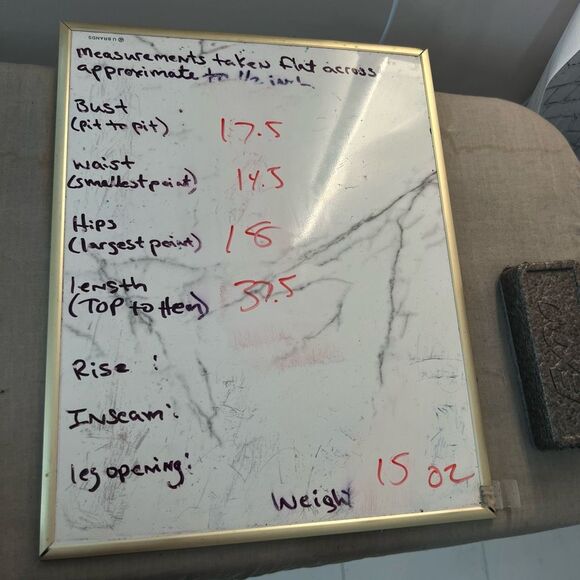 U BRANDS
measurements taken flat across
approximate to 1/2 inch
Bust
(pit to pit) 17.5
waist
(smallest point) 14.5
Hips
(largest point) 18
length
(TOP to Hem) 37.5
Rise :
Inseam:
leg opening:
15 oz
Weight